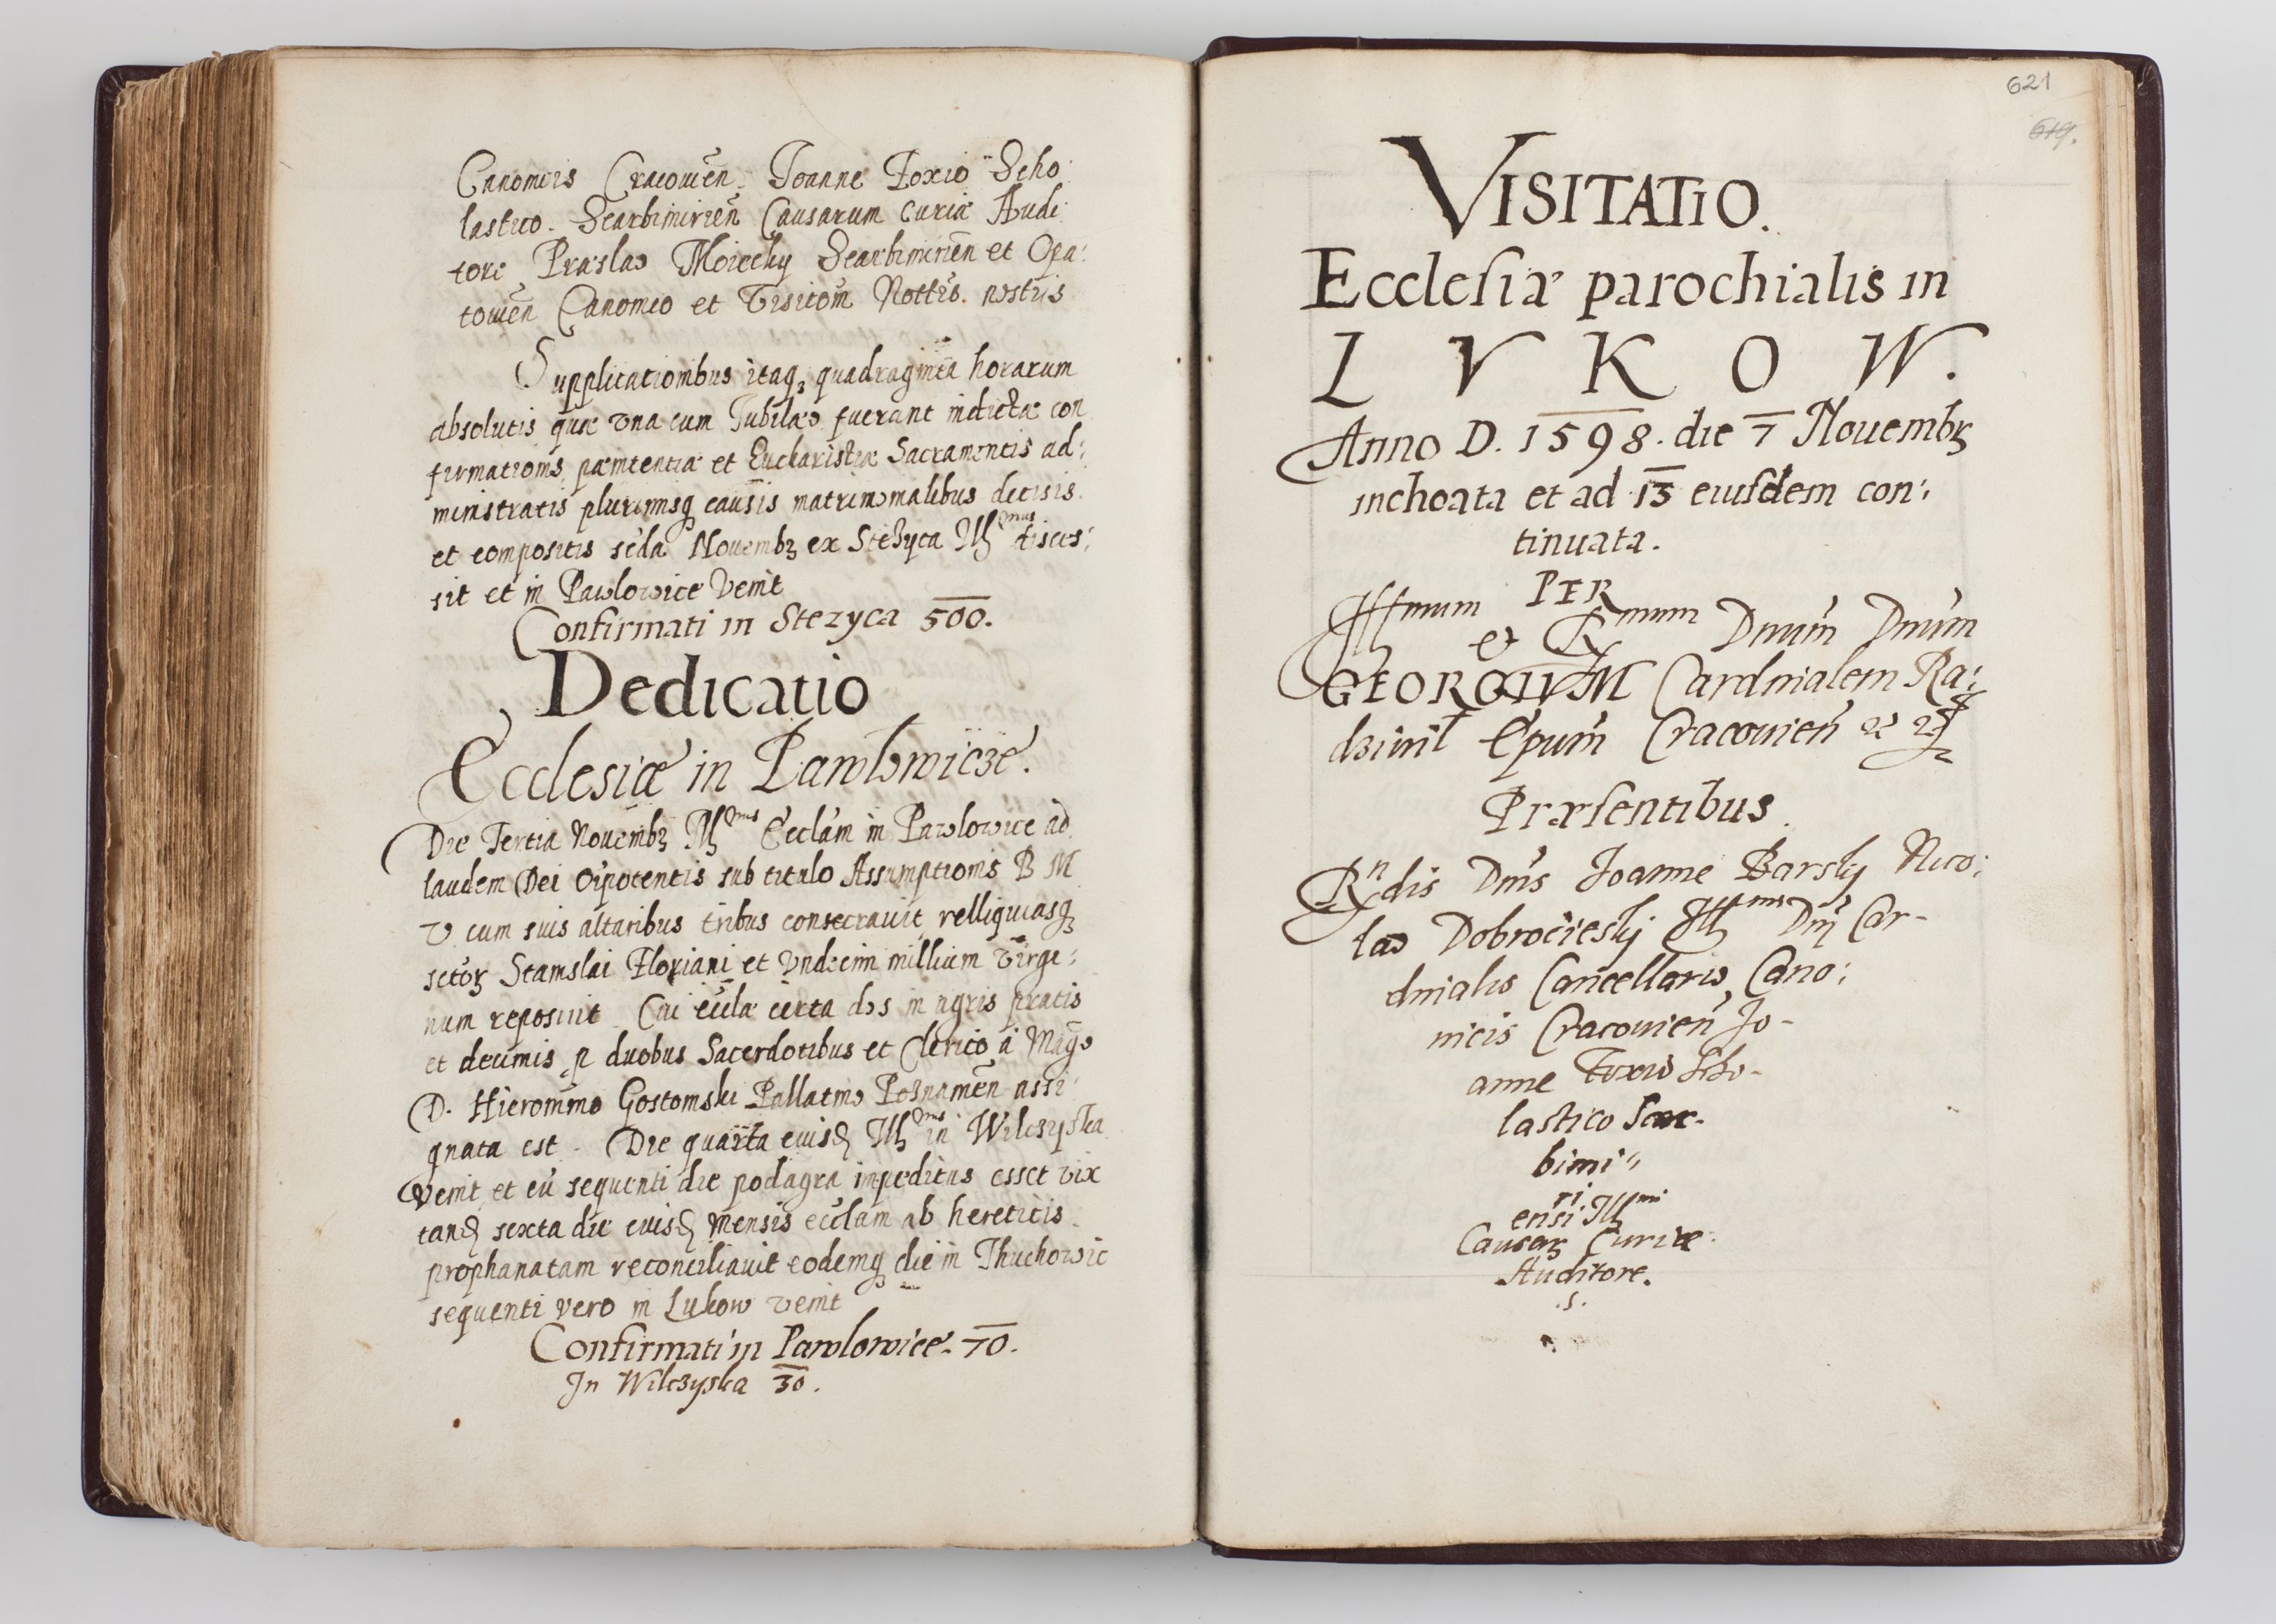 Canonicis Cracouien. Joanne Foxio Scho:
lastico. Scarbimirien Causarum Curiæ Audi:
tore Præslao Moiecky Scarbimirien et Opa:
touien Canonico et Visitom Nottis. nostris
Supplicationibus itaq3 quadraginta horarum
absolutis quæ vna cum Jubilæo fuerant indictæ con
firmationis, pænitentiæ et Eucharistiæ Sacramentis ad:
ministratis plurimisq causis matrimonialibus decisis
et compositis seda Nouemb3 ex Stezyca Ill mus disces:
sit et in Pawlowice venit
Confirmati in Stezyca 500.
Dedicatio
Ecclesiæ in Pawlowicze.
Die Tertia Nouemb3 Ill mus Ecclam in Pawlowice ad
laudem Dei Oipotentis sub titulo Assumptionis B M
V cum suis altaribus tribus consecrauit relliquiasq3
sctor3 Stanislai Floriani et Vndecim millium Virgi:
num reposuit Cui eccla certa dos in agris pratis
et decimis p duobus Sacerdotibus et Clerico a Mag
D. Hieronimo Gostomski Pallatino Posnanien assi
gnata est. Die quarta euisd Ill mus in Wilczyska
Venit et cu sequenti die podagra inpeditus esset vix
tand sexta die euisd mensis ecclam ab hereticis
prophanatam reconciliauit eodemq die in Thuchowic
sequenti vero in Lukow venit
Confirmati in Pawlowice. 70.
In Wilczyska 30.
621
619.
VISITATIO.
Ecclesiæ parochialis in
L V K O W.
Anno D. 1598. die 7 Nouemb3
inchoata et ad 13 eiusdem con:
tinuata.
PER
Illmum et Rmum Dnum Dnum
GEORGIVM Cardinalem Ra:
dziuil Epum Cracouien
Præsentibus
Rndis Dnis Joanne Barsky Nico:
lao Dobrocieskj Ill mi Dnj Car-
dinalis Cancellario, Cano:
nicis Cracouien Jo-
anne Foxio Scho-
lastico Scar-
bimi
ri
ensi Ill mi
Causar3 Curiæ
Auditore.
.s.